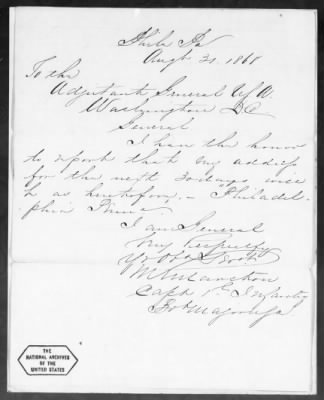 Phila Pa
Augt 31. 1868
To the
Adjutant General U.S.A.
Washington DC
General
I have the honor
to report that my address
for the next 30 days will
be as heretofore, - "Philadel-
phia Penna"
I am General
Very Respectfy
Yr Obt Servt
Capt 1st Infantry
Bvt Major USA
THE
NATIONAL ARCHIVES
OF THE
UNITED STATES